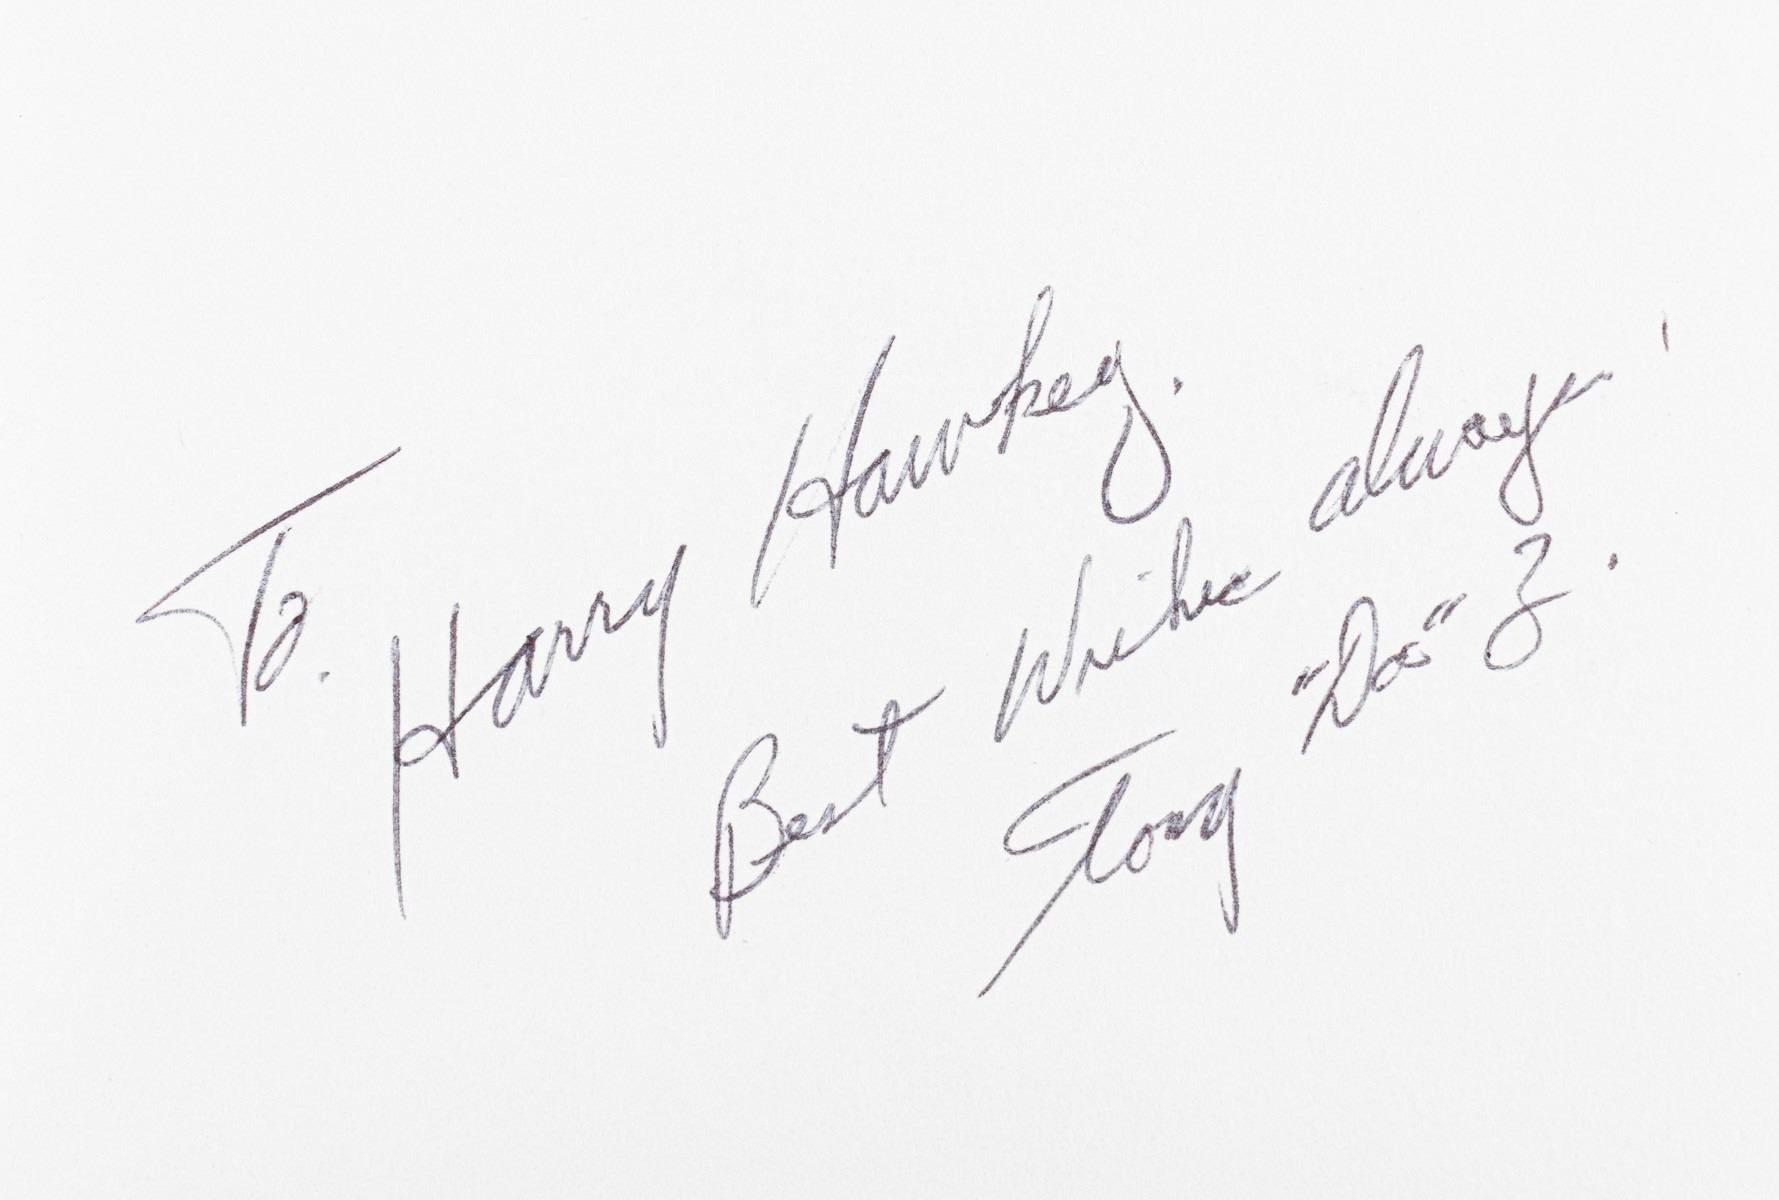 To. Harry Hawkey.
Best Wishes always
Tony "Do" Z.